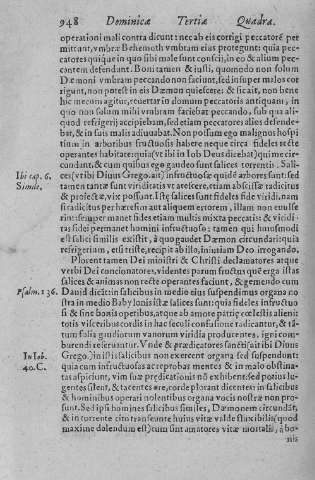 948 Dominicæ Tertiæ Quadra.
operationi mali contra dicunt: nec ab eis corrigi peccatorē per
mittunt, vmbræ Behemoth vmbram eius protegunt: quia pec-
catores quique in quo sibi male sunt conscii, in eo & alium pec-
cantem defendunt. Boni tamen & iusti, quomodo non solum
Dæmoni vmbram peccando non faciunt, sed insuper malos cor
rigunt, non potest in eis Dæmon quiescere: & sic ait, non bene
hic mecum agitur, reuertar in domum peccatoris antiquam, in
quo non solum mihi vmbram faciebat peccando, sub qua ali-
quod refrigerii accipiebam, sed etiam peccatores alios defende-
bat, & in suis malis adiuuabat. Non possum ego malignos hospi
tium in arboribus fructuosis habere neque circa fideles recte
operantes habitare: quia (vt ibi in Iob Deus dicebat) qui me cir-
condant, & cum quibus ego gaudeo sunt salices torrentis. Sali-
Ibi cap. 6. ces (vt ibi Diuus Greg. ait) infructuosæ quidē arbores sunt: sed
tamen tantæ sunt viriditatis vt arescere, etiam abscissæ radicitus
& proiectæ, vix possunt. Iste salices sunt fideles fide viridi, nam
si radicitus per hæresim aut aliquem errorem, illam non euulse
rint: semper manet fides etiam multis mixta peccatis: & viridi-
tas fidei permanet homini infructuoso: tamen qui huiusmodi
est salici similis existit, à quo gaudet Dæmon circundari: quia
refrigerium, esti triste, recipit ab illo, in iniuriam Deo irrogando.
Plorent tamen Dei ministri & Christi declamatores atque
verbi Dei concionatores, videntes parum fructus quē erga istas
salices & animas non recte operantes faciunt, & gemendo cum
Psalm. 136. Dauid dicāt: in salicibus in medio eius suspendimus organa no
stra in medio Babylonis istæ salices sunt: quia fideles infructuo
si & sine bonis operibus, atque ab amore patrię cœlestis alieni:
totis visceribus cordis in hac seculi confusione radicantur, & tā-
tum falis gaudiorum vanorum viridia producentes, igni com-
burendi reseruantur. Vnde & prædicatores sancti (ait ibi Diuus
In Iob. Greg.) in istis salicibus non exercent organa sed suspendunt:
40. C. quia cum infructuosas ac reprobas mentes & in malo obstina-
tas aspiciunt, vim suæ prædicationis nō exhibent: sed potius lu-
gentes silent, & tacentes ore, corde plorant dicentes: in salicibus
& hominibus operati nolentibus organa vocis nostræ non pro-
sunt. Sed ipsi homines salicibus similes, Dæmonem circundāt,
& in torrente cito transeunte huius vitæ valde stabilis (quod
maxime dolendum est) cum sint amatores vitæ mortalis, à bo-
nis